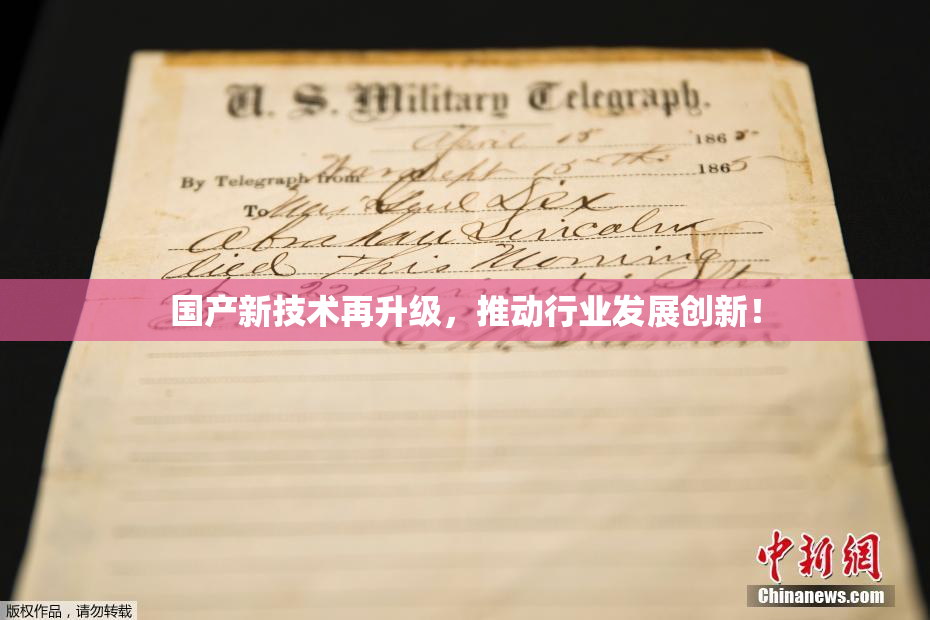 U. S. Military Telegraph.
April 15 1865-
By Telegraph from War Dept 15th 1865
To Maj Genl Dix
Abraham Lincoln
died This Morning
at 22 minutes after
国产新技术再升级，推动行业发展创新！
E. M. Stanton
中新网
Chinanews.com
版权作品，请勿转载